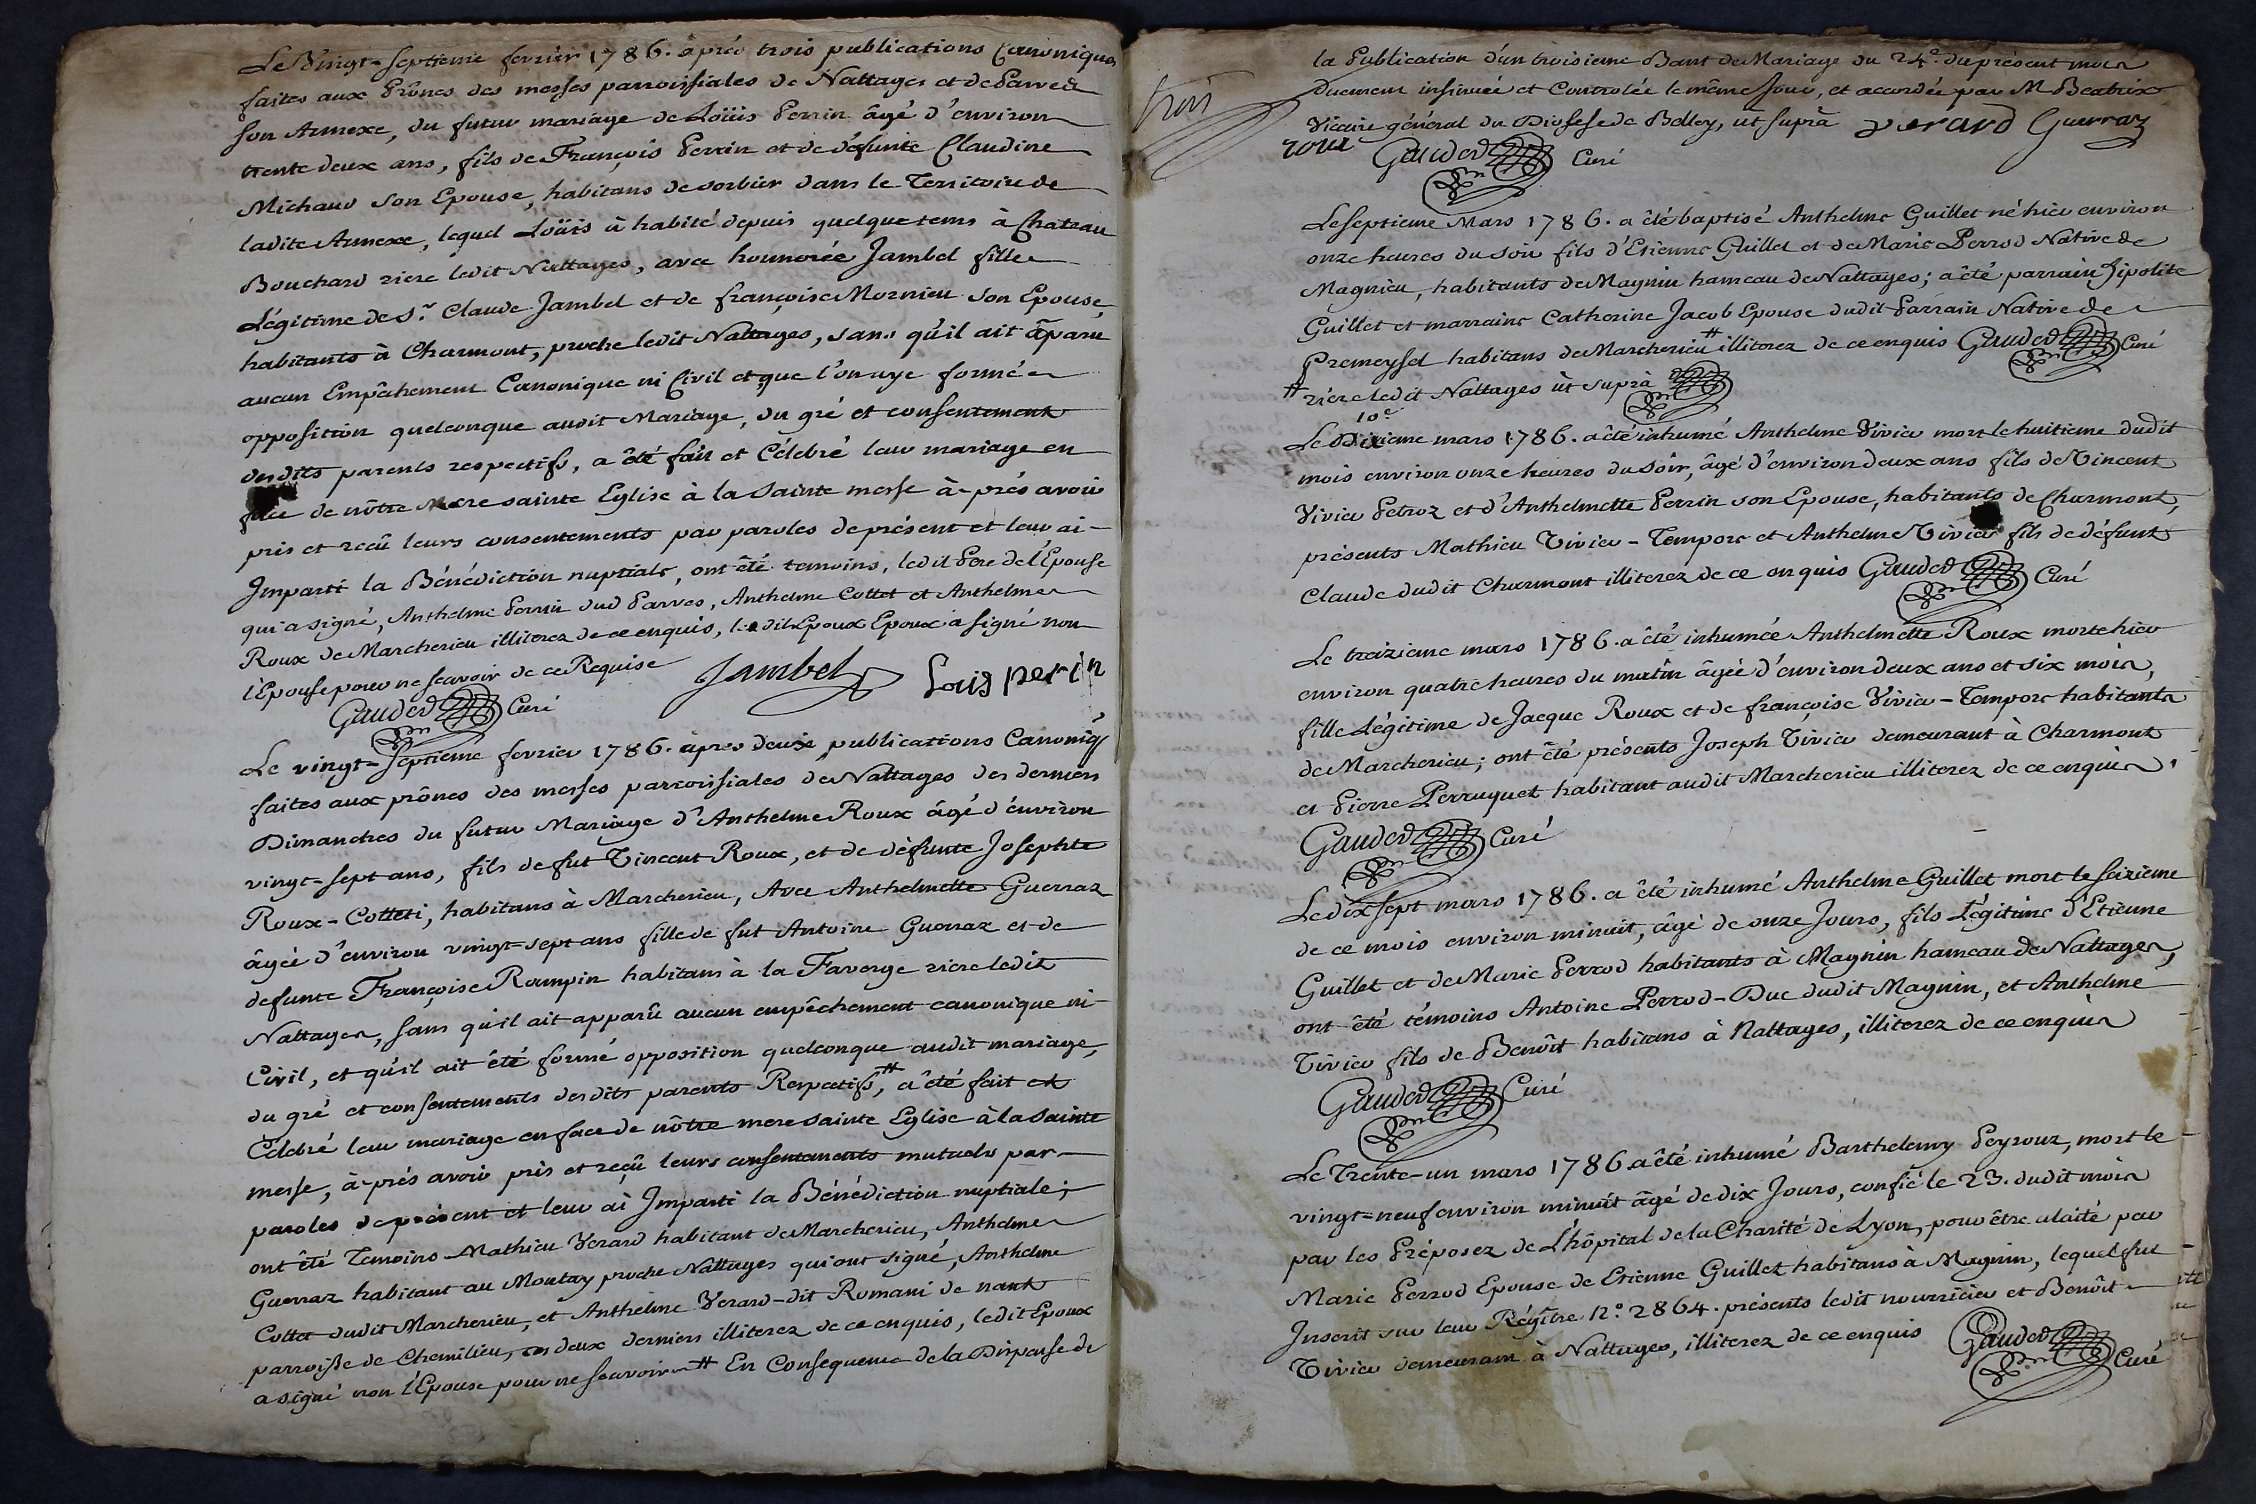 Le Vingt-septieme fevrier 1786. après trois publications Canoniques
faites aux Prônes des messes parroissiales de Nattages et de Parves
son Annexe, du futur mariage de Loüis Perrin âgé d'environ
trente deux ans, fils de François Perrin et de défunte Claudine
Michaud son Epouse, habitans de sorbier dans le Territoire de
ladite Annexe, lequel Loüis à habité depuis quelque tems à Chateau
Bouchard riere ledit Nattages, avec honnorée Jambel fille
Légitime de S.r Claude Jambel et de françoise Mornieu son Epouse,
habitants à Charmont, proche ledit Nattages, sans qu'il ait âparu
aucun Empêchement Canonique ni Civil et que l'on aye formé
opposition quelconque audit Mariage, du gré et consentement
desdits parents respectifs, a été fait et Célébré leur mariage en
face de nôtre Mere sainte Eglise à la sainte messe à-prés avoir
pris et reçû leurs consentements par paroles de présent et leur ai-
Imparti la Bénédiction nuptiale, ont êté temoins, ledit Pere de l'Epouse
qui a signé, Anthelme Perrin dud Parves, Anthelme Collet et Anthelme
Roux de Marcherieu illiterez de ce enquis, ledit Epoux Epoux a signé non
l'Epouse pour ne scavoir de ce Requise Jambel Louis perin
Gauded Curé
Le vingt-septieme fevrier 1786. après deux publications Canoniq
faites aux prônes des messes parroissiales de Nattages des derniers
Dimanches du futur Mariage d'Anthelme Roux âgé d'environ
vingt-sept ans, fils de fut Vincent Roux, et de défunte Josephte
Roux-Colleti, habitans à Marcherieu, Avec Anthelmette Guerraz
âgée d'environ vingt-sept ans fille de fut Antoine Guerraz et de
defunte Françoise Rompin habitans à la Faverge riere ledit
Nattages, sans qu'il ait apparû aucun empêchement canonique ni
Civil, et qu'il ait été formé opposition quelconque audit mariage,
du gré et consentements desdits parents Respectifs, # a êté fait et
Célébré leur mariage en face de nôtre mere sainte Eglise à la sainte
messe, à-prés avoir pris et reçû leurs consentements mutuels par
paroles de présent et leur ai Imparti la Bénédiction nuptiale;
ont êté Temoins Mathieu Verard habitant de Marcherieu, Anthelme
Guerraz habitant au Moutay proche Nattages qui ont signé, Anthelme
Collet dudit Marcherieu, et Anthelme Verard-dit Romani de nant
parroisse de Chemilieu, ces deux derniers illiterez de ce enquis, ledit Epoux
a signé non l'Epouse pour ne scavoir # En Consequence de la Dispense de
la Publication d'un troisieme Bant de Mariage du 24.e du présent mois
duement insinuée et Controlée le même Jour, et accordée par M Beatrix
Vicaire général du Diosese de Belley, ut suprà verard Guerraz
roux Gauded Curé
trois
Le septieme Mars 1786. a été baptisé Anthelme Guillet né hier environ
onze heures du soir fils d'Etienne Guillet et de Marie Perrod Native de
Magnieu, habitants de Magnin hameau de Nattages; a été parrain hipolite
Guillet et marraine Catherine Jacob Epouse dudit Parrain Native de
Premeysel habitans de Marcherieu # illiterez de ce enquis Gauded Curé
# riere ledit Nattages ut suprà
10.e
Le Dixieme mars 1786. a été inhumé Anthelme Vivier mort le huitieme dudit
mois environ onze heures du soir, âgé d'environ deux ans fils de Vincent
Vivier Petroz et d'Anthelmette Perrin son Epouse, habitants de Charmont,
présents Mathieu Vivier-Tempore et Anthelme Vivier fils de défunt
Claude dudit Charmont illiterez de ce enquis Gauded Curé
Le treizieme mars 1786. a été inhumée Anthelmette Roux morte hier
environ quatre heures du matin âgée d'environ deux ans et six mois,
fille Légitime de Jacque Roux et de françoise Vivier-Tempore habitants
de Marcherieu; ont êté présents Joseph Vivier demeurant à Charmont
et Pierre Perruquet habitant audit Marcherieu illiterez de ce enquis.
Gauded Curé
Le dix sept mars 1786. a êté inhumé Anthelme Guillet mort le seizieme
de ce mois environ minuit, âgé de onze Jours, fils Légitime d'Etienne
Guillet et de Marie Perrod habitants à Magnin hameau de Nattages,
ont êté témoins Antoine Perrod-Duc dudit Magnin, et Anthelme
Vivier fils de Benoît habitans à Nattages, illiterez de ce enquis
Gauded Curé
Le Trente-un mars 1786 a êté inhumé Barthelemy Peyrouz, mort le
vingt-neuf environ minuit âgé de dix Jours, confié le 23. dudit mois
par les Préposez de L'hôpital de la Charité de Lyon, pour être alaité par
Marie Perrod Epouse de Etienne Guillet habitans à Magnin, lequel fut
Inscrit sur leur Régître N.o 2864. présents ledit nourricier et Benoît
Vivier demeurant à Nattages, illiterez de ce enquis Gauded Curé